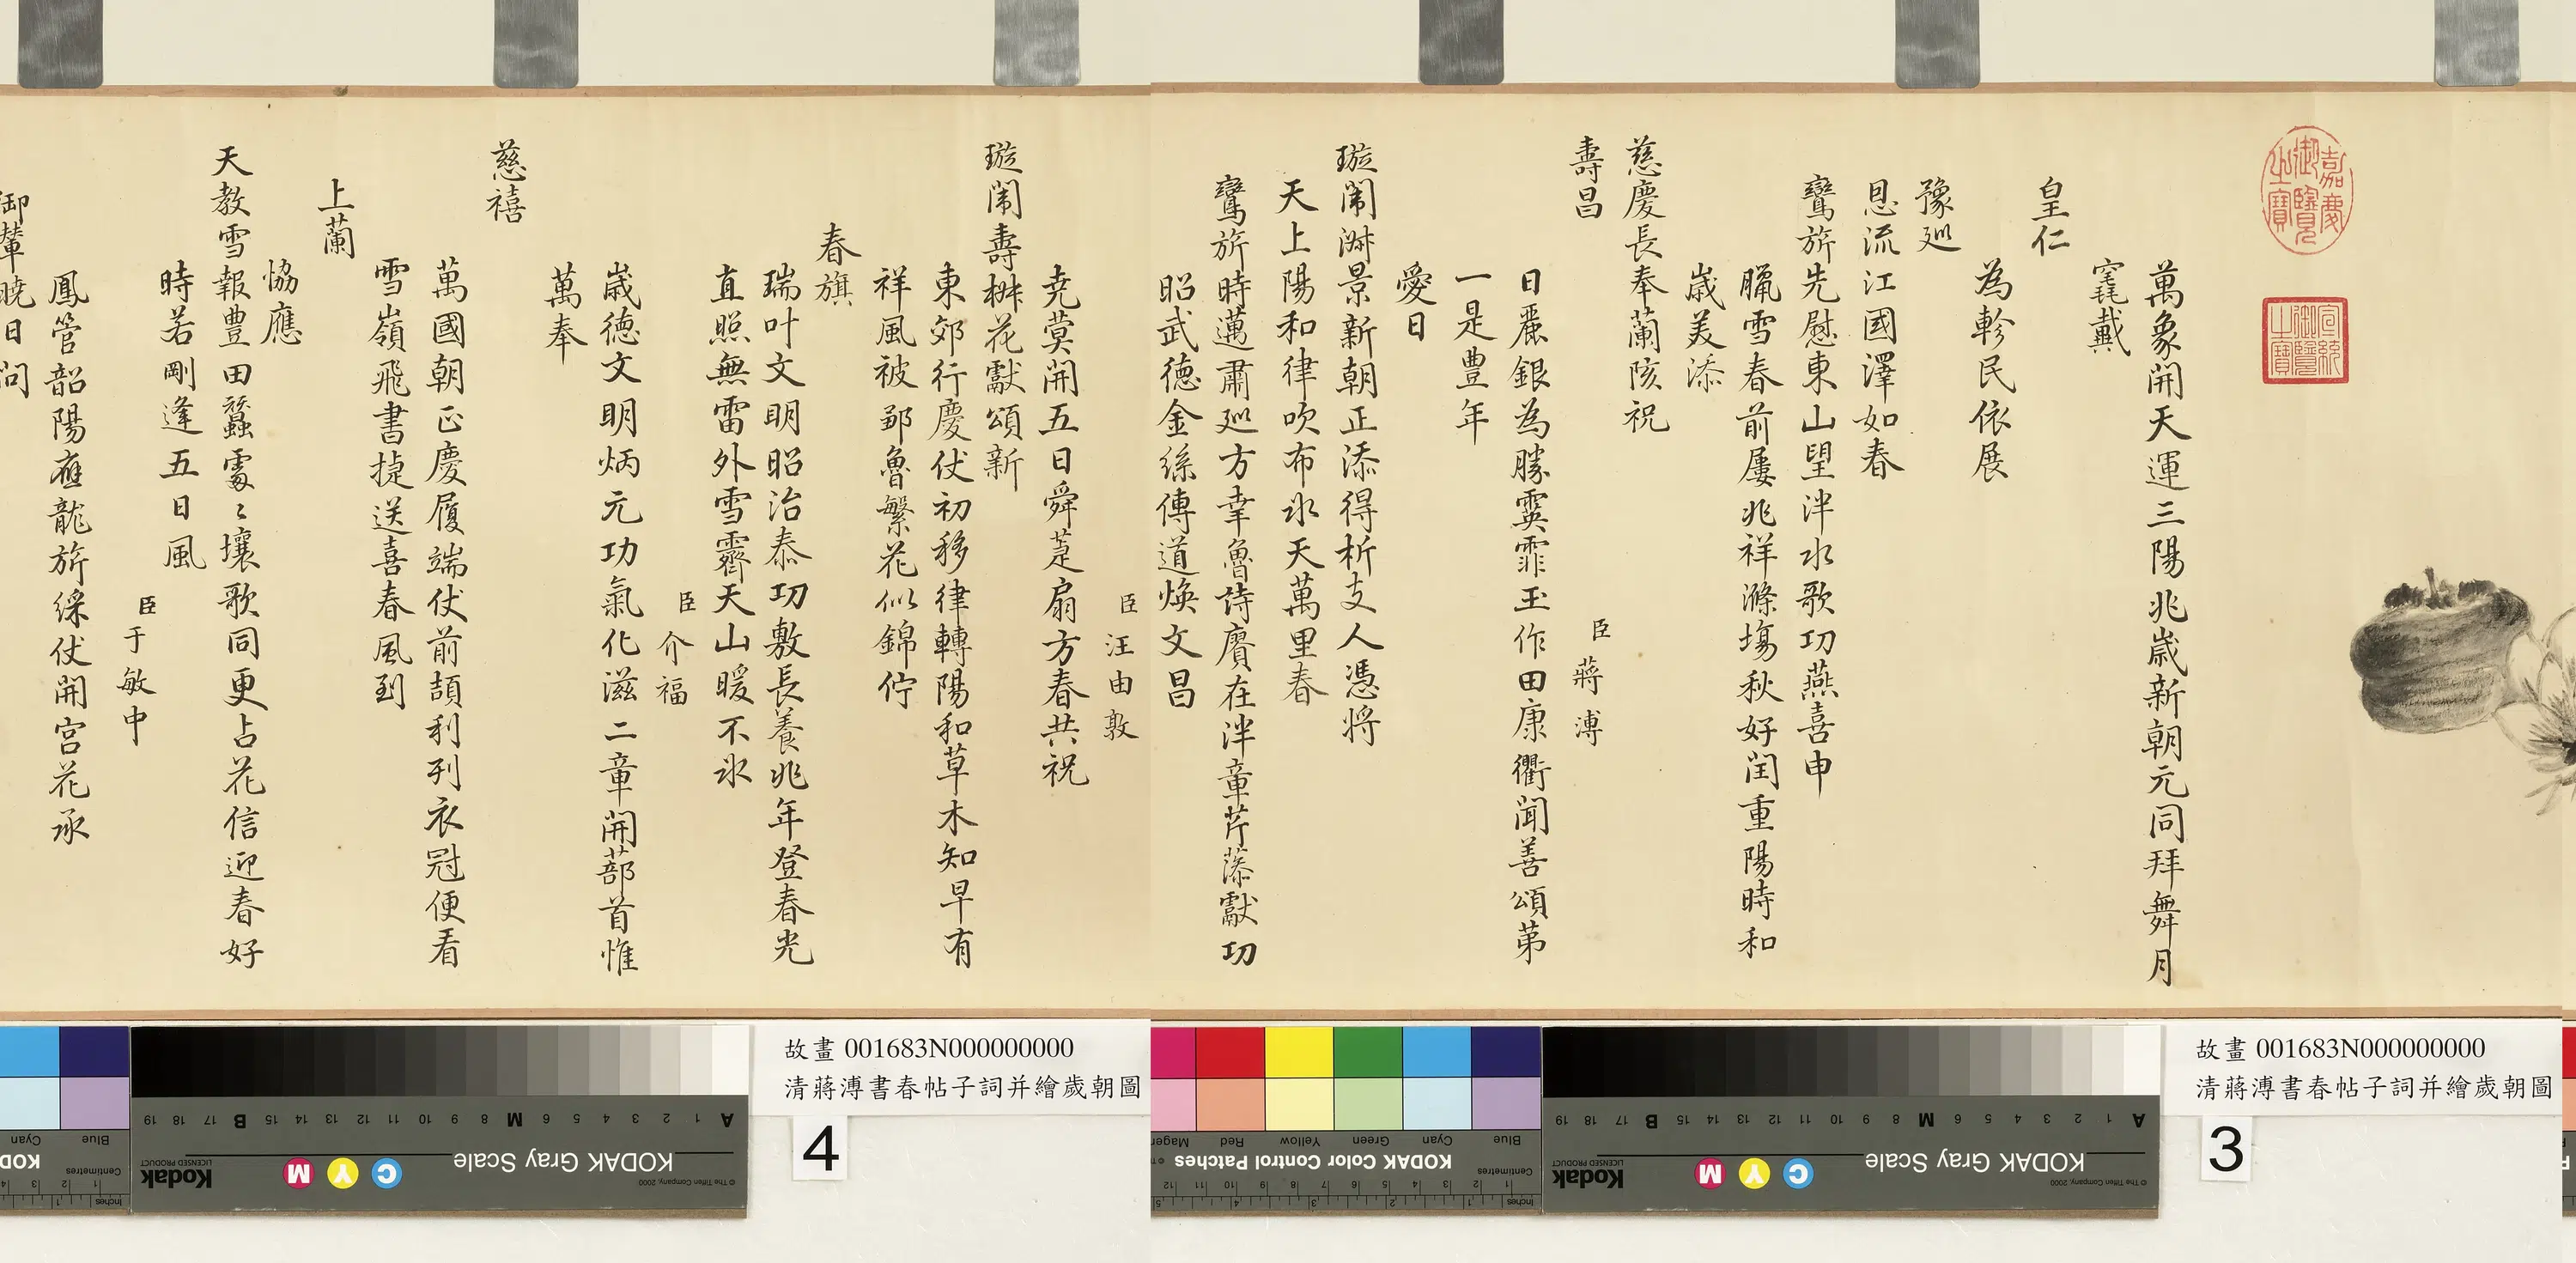 嘉慶御覽之寶
宣統御覽之寶
萬象開天運三陽兆歲新朝元同拜舞月
窰戴
皇仁
為軫民依展
豫巡
恩流江國澤如春
鸞旂先慰東山望泮水歌功燕喜申
臘雪春前屢兆祥滌場秋好閏重陽時和
歲美添
慈慶長奉蘭陔祝
壽昌
臣蔣溥
日麗銀為勝霙霏玉作田康衢聞善頌第
一是豐年
愛日
璇闈淑景新朝正添得析支人憑將
天上陽和律吹布冰天萬里春
鸞旂時邁肅巡方幸魯詩賡在泮章芹藻獻功
昭武德金絲傳道煥文昌
臣汪由敦
堯蓂開五日舜萐扇方春共祝
璇闈壽椒花獻頌新
東郊行慶伏初移律轉陽和草木知早有
祥風被鄒魯繁花似錦佇
春旗
瑞叶文明昭治泰功敷長養兆年登春光
直照無雷外雪霽天山暖不冰
臣介福
歲德文明炳元功氣化滋二章開蔀首惟
萬奉
慈禧
萬國朝正慶履端仗前頡利列衣冠便看
雪嶺飛書捷送喜春風到
上蘭
恊應
天教雪報豐田蠶處〻壤歌同更占花信迎春好
時若剛逢五日風
臣于敏中
鳳管韶陽應龍旂綵仗開宮花承
御輦曉日問
故畫 001683N000000000
清蔣溥書春帖子詞并繪歲朝圖
3
故畫 001683N000000000
清蔣溥書春帖子詞并繪歲朝圖
4
KODAK Gray Scale
Kodak
LICENSED PRODUCT
© The Tiffen Company, 2000
C Y M
A 1 2 3 4 5 6 M 8 9 10 11 12 13 14 15 B 17 18 19
KODAK Color Control Patches
Blue Cyan Green Yellow Red
Inches
Centimetres
KODAK Gray Scale
Kodak
LICENSED PRODUCT
© The Tiffen Company, 2000
C Y M
A 1 2 3 4 5 6 M 8 9 10 11 12 13 14 15 B 17 18 19
Blue Cyan
Inches
Centimetres